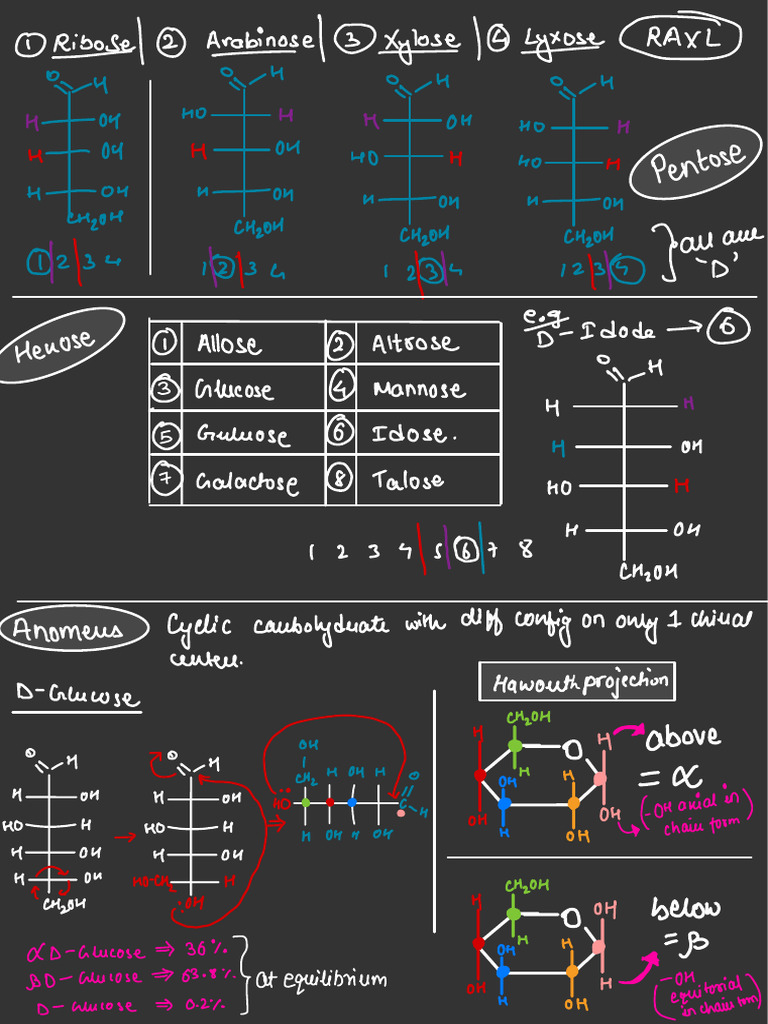 ① Ribose | ② Arabinose | ③ Xylose | ④ Lyxose RAXL
O H O H O H O H
H OH HO H H OH HO H
H OH H OH HO H HO H
H OH H OH H OH H OH
CH₂OH CH₂OH CH₂OH CH₂OH
① 2 3 4 1 ② 3 4 1 2 ③ 4 1 2 3 ④
Pentose
all are
'D'
Hexose
① Allose ② Altrose
③ Glucose ④ Mannose
⑤ Guluose ⑥ Idose.
⑦ Galactose ⑧ Talose
e.g
D-Idode → ⑥
O H
H H
H OH
HO H
H OH
CH₂OH
1 2 3 4 5 ⑥ 7 8
Anomers Cyclic carbohydrate with diff config on only 1 chiral
center.
D-Glucose
O H
H OH
HO H
H OH
H OH
CH₂OH
→
O H
H OH
HO H
H OH
HO-CH₂ H
OH
⇒
OH
CH₂ H OH H O
HO C H
H OH H OH
αD-Glucose ⇒ 36%
βD-Glucose ⇒ 63.8%
D-Glucose ⇒ 0.2%
at equilibrium
Haworth projection
CH₂OH
H O H
OH H H
OH OH OH
above
= α
(-OH axial in
chair form)
CH₂OH
H O OH
OH H H
OH OH H
below
= β
(-OH
equitorial
in chair form)